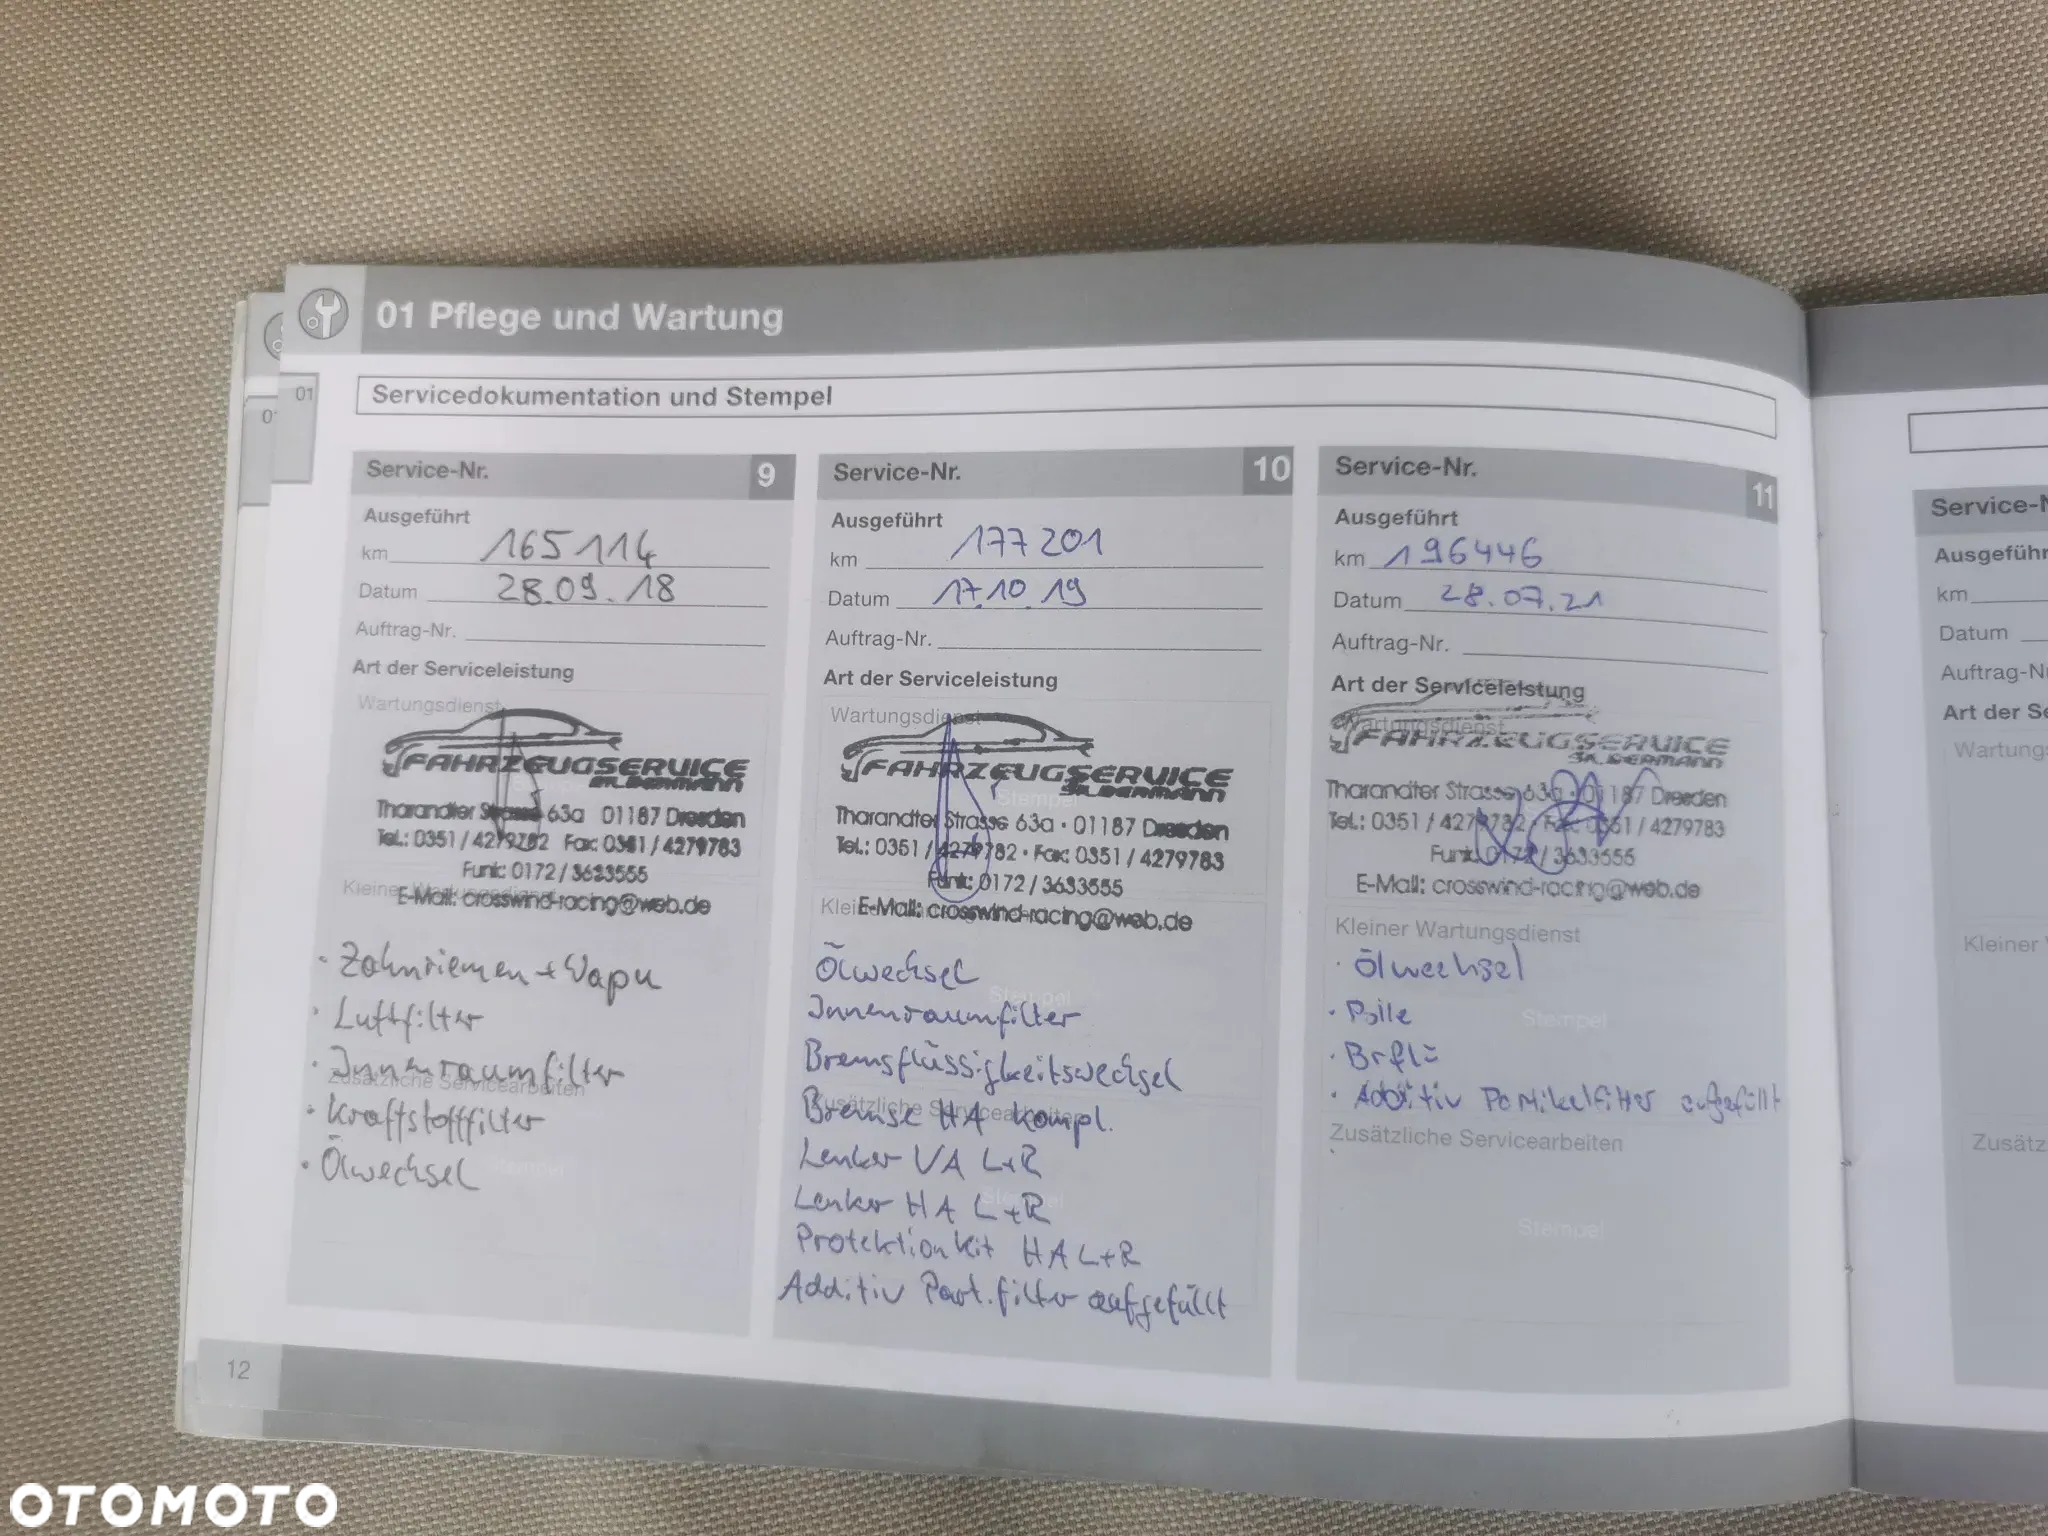 01 Pflege und Wartung
01
Servicedokumentation und Stempel
Service-Nr. 9
Ausgeführt
km 165114
Datum 28.09.18
Auftrag-Nr.
Art der Serviceleistung
Wartungsdienst
FAHRZEUGSERVICE
Tharandter Strasse 63a 01187 Dresden
Tel.: 0351 / 4279782 Fax: 0351 / 4279783
Funk: 0172 / 3633555
Kleiner Wartungsdienst
E-Mail: crosswind-racing@web.de
· Zahnriemen + Wapu
· Luftfilter
· Innenraumfilter
Zusätzliche Servicearbeiten
· Kraftstofffilter
· Ölwechsel
Stempel
Service-Nr. 10
Ausgeführt
km 177201
Datum 17.10.19
Auftrag-Nr.
Art der Serviceleistung
Wartungsdienst
FAHRZEUGSERVICE
Stempel
Tharandter Strasse 63a · 01187 Dresden
Tel.: 0351 / 4279782 · Fax: 0351 / 4279783
Funk: 0172 / 3633555
E-Mail: crosswind-racing@web.de
Ölwechsel
Stempel
Innenraumfilter
Bremsflüssigkeitswechsel
Zusätzliche Servicearbeiten
Bremse HA kompl.
Lenker VA L+R
Stempel
Lenker HA L+R
Protektion Kit HA L+R
Additiv Part.filter aufgefüllt
Service-Nr. 11
Ausgeführt
km 196446
Datum 28.07.21
Auftrag-Nr.
Art der Serviceleistung
Wartungsdienst
FAHRZEUGSERVICE
Tharandter Strasse 63a · 01187 Dresden
Tel.: 0351 / 4279782 · Fax: 0351 / 4279783
Funk: 0172 / 3633555
E-Mail: crosswind-racing@web.de
Kleiner Wartungsdienst
· Ölwechsel
· Polle
Stempel
· Brflü
· Additiv Partikelfilter aufgefüllt
Zusätzliche Servicearbeiten
Stempel
12
Service-N
Ausgeführ
km
Datum
Auftrag-N
Art der Se
Wartungs
Kleiner
Zusätz
OTOMOTO